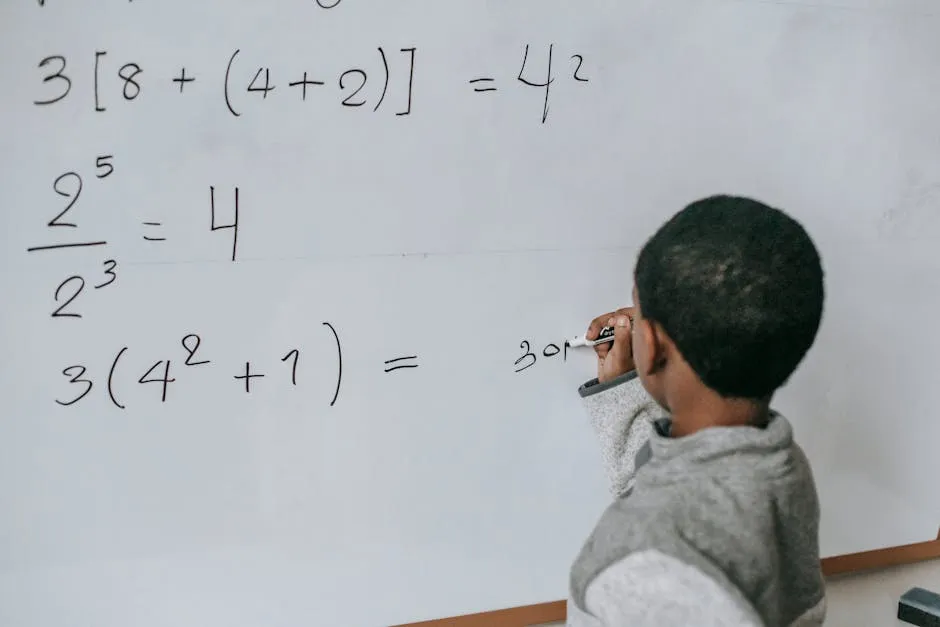 3[8 + (4+2)] = 4²
2⁵
= 4
2³
3(4² + 1) = 30